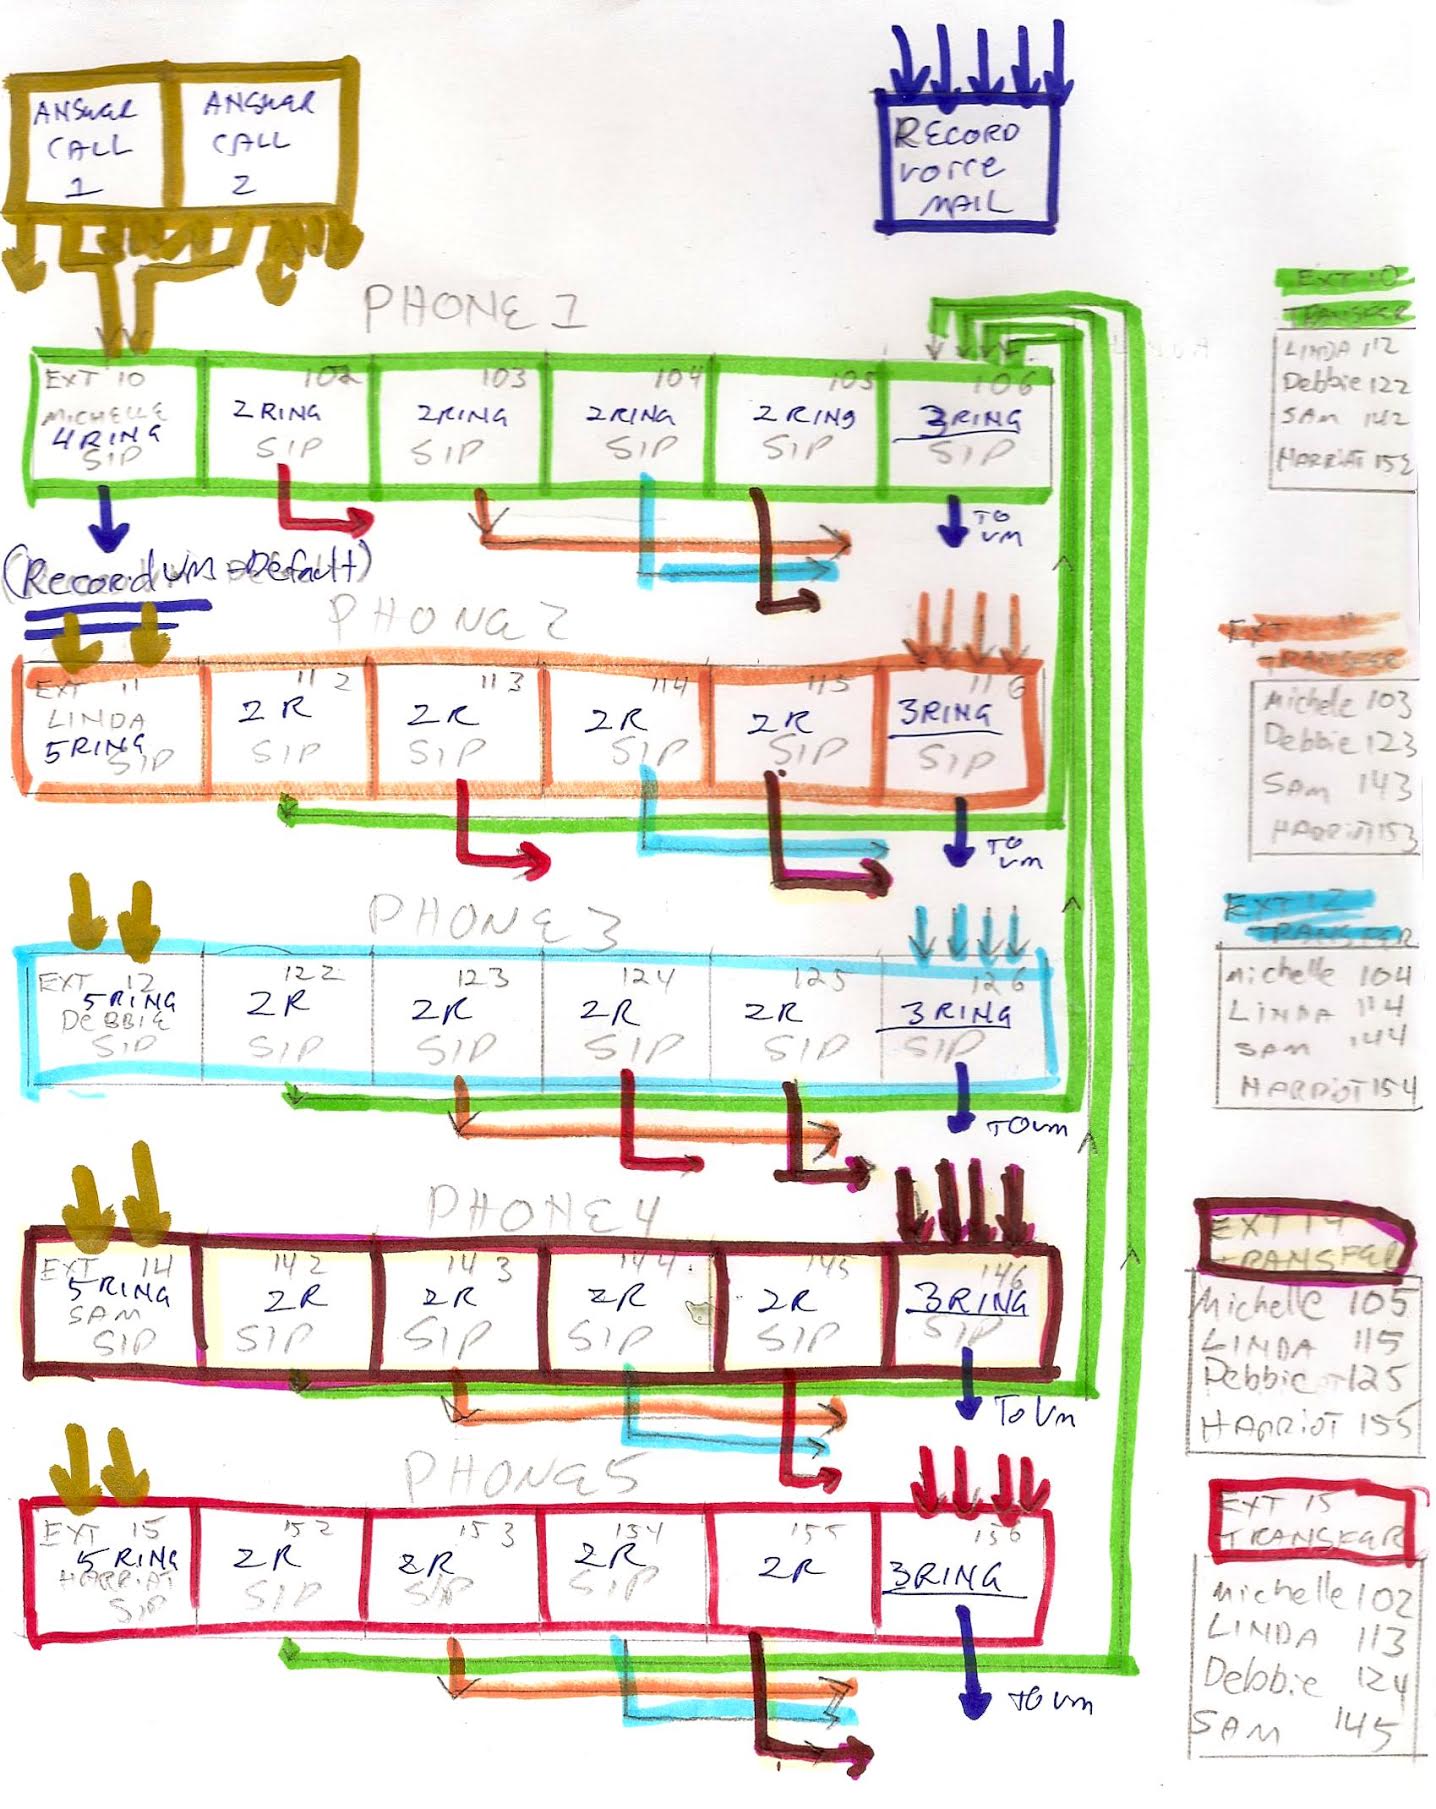 ANSWER
CALL
1
ANSWER
CALL
2
RECORD
VOICE
MAIL
PHONE 1
EXT 10
MICHELLE
4 RING
SIP
102
2 RING
SIP
103
2 RING
SIP
104
2 RING
SIP
105
2 RING
106
3 RING
SIP
TO
VM
(Record VM = Default)
PHONE 2
EXT 11
LINDA
5 RING
SIP
112
2 R
SIP
113
2 R
SIP
114
2 R
SIP
115
2 R
SIP
116
3 RING
SIP
TO
VM
PHONE 3
EXT 12
5 RING
DEBBIE
SIP
122
2 R
SIP
123
2 R
SIP
124
2 R
SIP
125
2 R
SIP
126
3 RING
SIP
TO vm
PHONE 4
EXT 14
5 RING
SAM
SIP
142
2R
SIP
143
2R
SIP
144
2R
SIP
145
2R
SIP
146
3 RING
SIP
To Vm
PHONE 5
EXT 15
5 RING
HARRIAT
SIP
152
2R
SIP
153
2R
SIP
154
2R
SIP
155
2R
156
3 RING
TO vm
EXT 10
TRANSFER
LINDA 112
Debbie 122
SAM 142
HARRIAT 152
EXT 11
TRANSFER
Michelle 103
Debbie 123
SAM 143
HARRIOT 153
EXT 12
TRANSFER
Michelle 104
LINDA 114
SAM 144
HARRIOT 154
EXT 14
TRANSFER
Michelle 105
LINDA 115
Debbie 125
HARRIOT 155
EXT 15
TRANSFER
Michelle 102
LINDA 113
Debbie 124
SAM 145